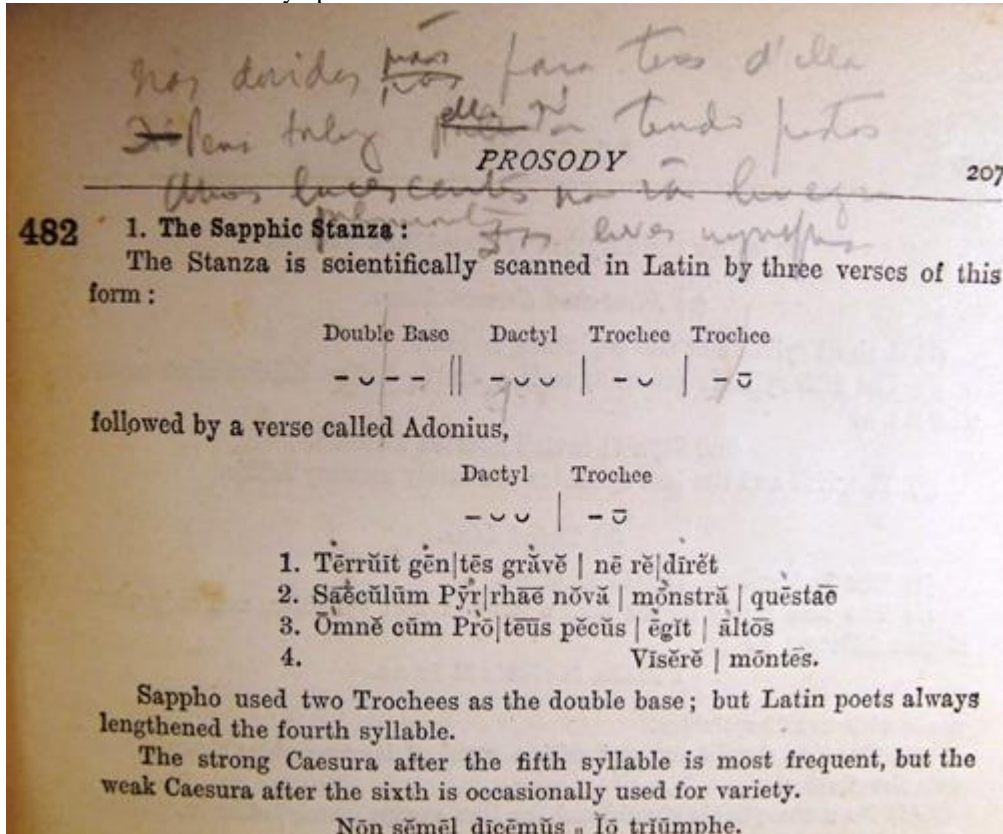 para d'ella
tendo
PROSODY 207
482 1. The Sapphic Stanza:
The Stanza is scientifically scanned in Latin by three verses of this
form:
Double Base Dactyl Trochee Trochee
– ⏑ – – || – ⏑ ⏑ | – ⏑ | – ⏓
followed by a verse called Adonius,
Dactyl Trochee
– ⏑ ⏑ | – ⏓
1. Tērrŭĭt gēn|tēs grăvĕ | nē rĕ|dīrĕt
2. Saēcŭlūm Pȳr|rhāē nŏvă | mōnstră | quēstāē
3. Ōmnĕ cūm Prō|tēūs pĕcŭs | ēgĭt | āltōs
4. Vīsĕrĕ | mōntēs.
Sappho used two Trochees as the double base; but Latin poets always
lengthened the fourth syllable.
The strong Caesura after the fifth syllable is most frequent, but the
weak Caesura after the sixth is occasionally used for variety.
Nōn sĕmēl dīcēmŭs „ Ĭō trĭūmphe.